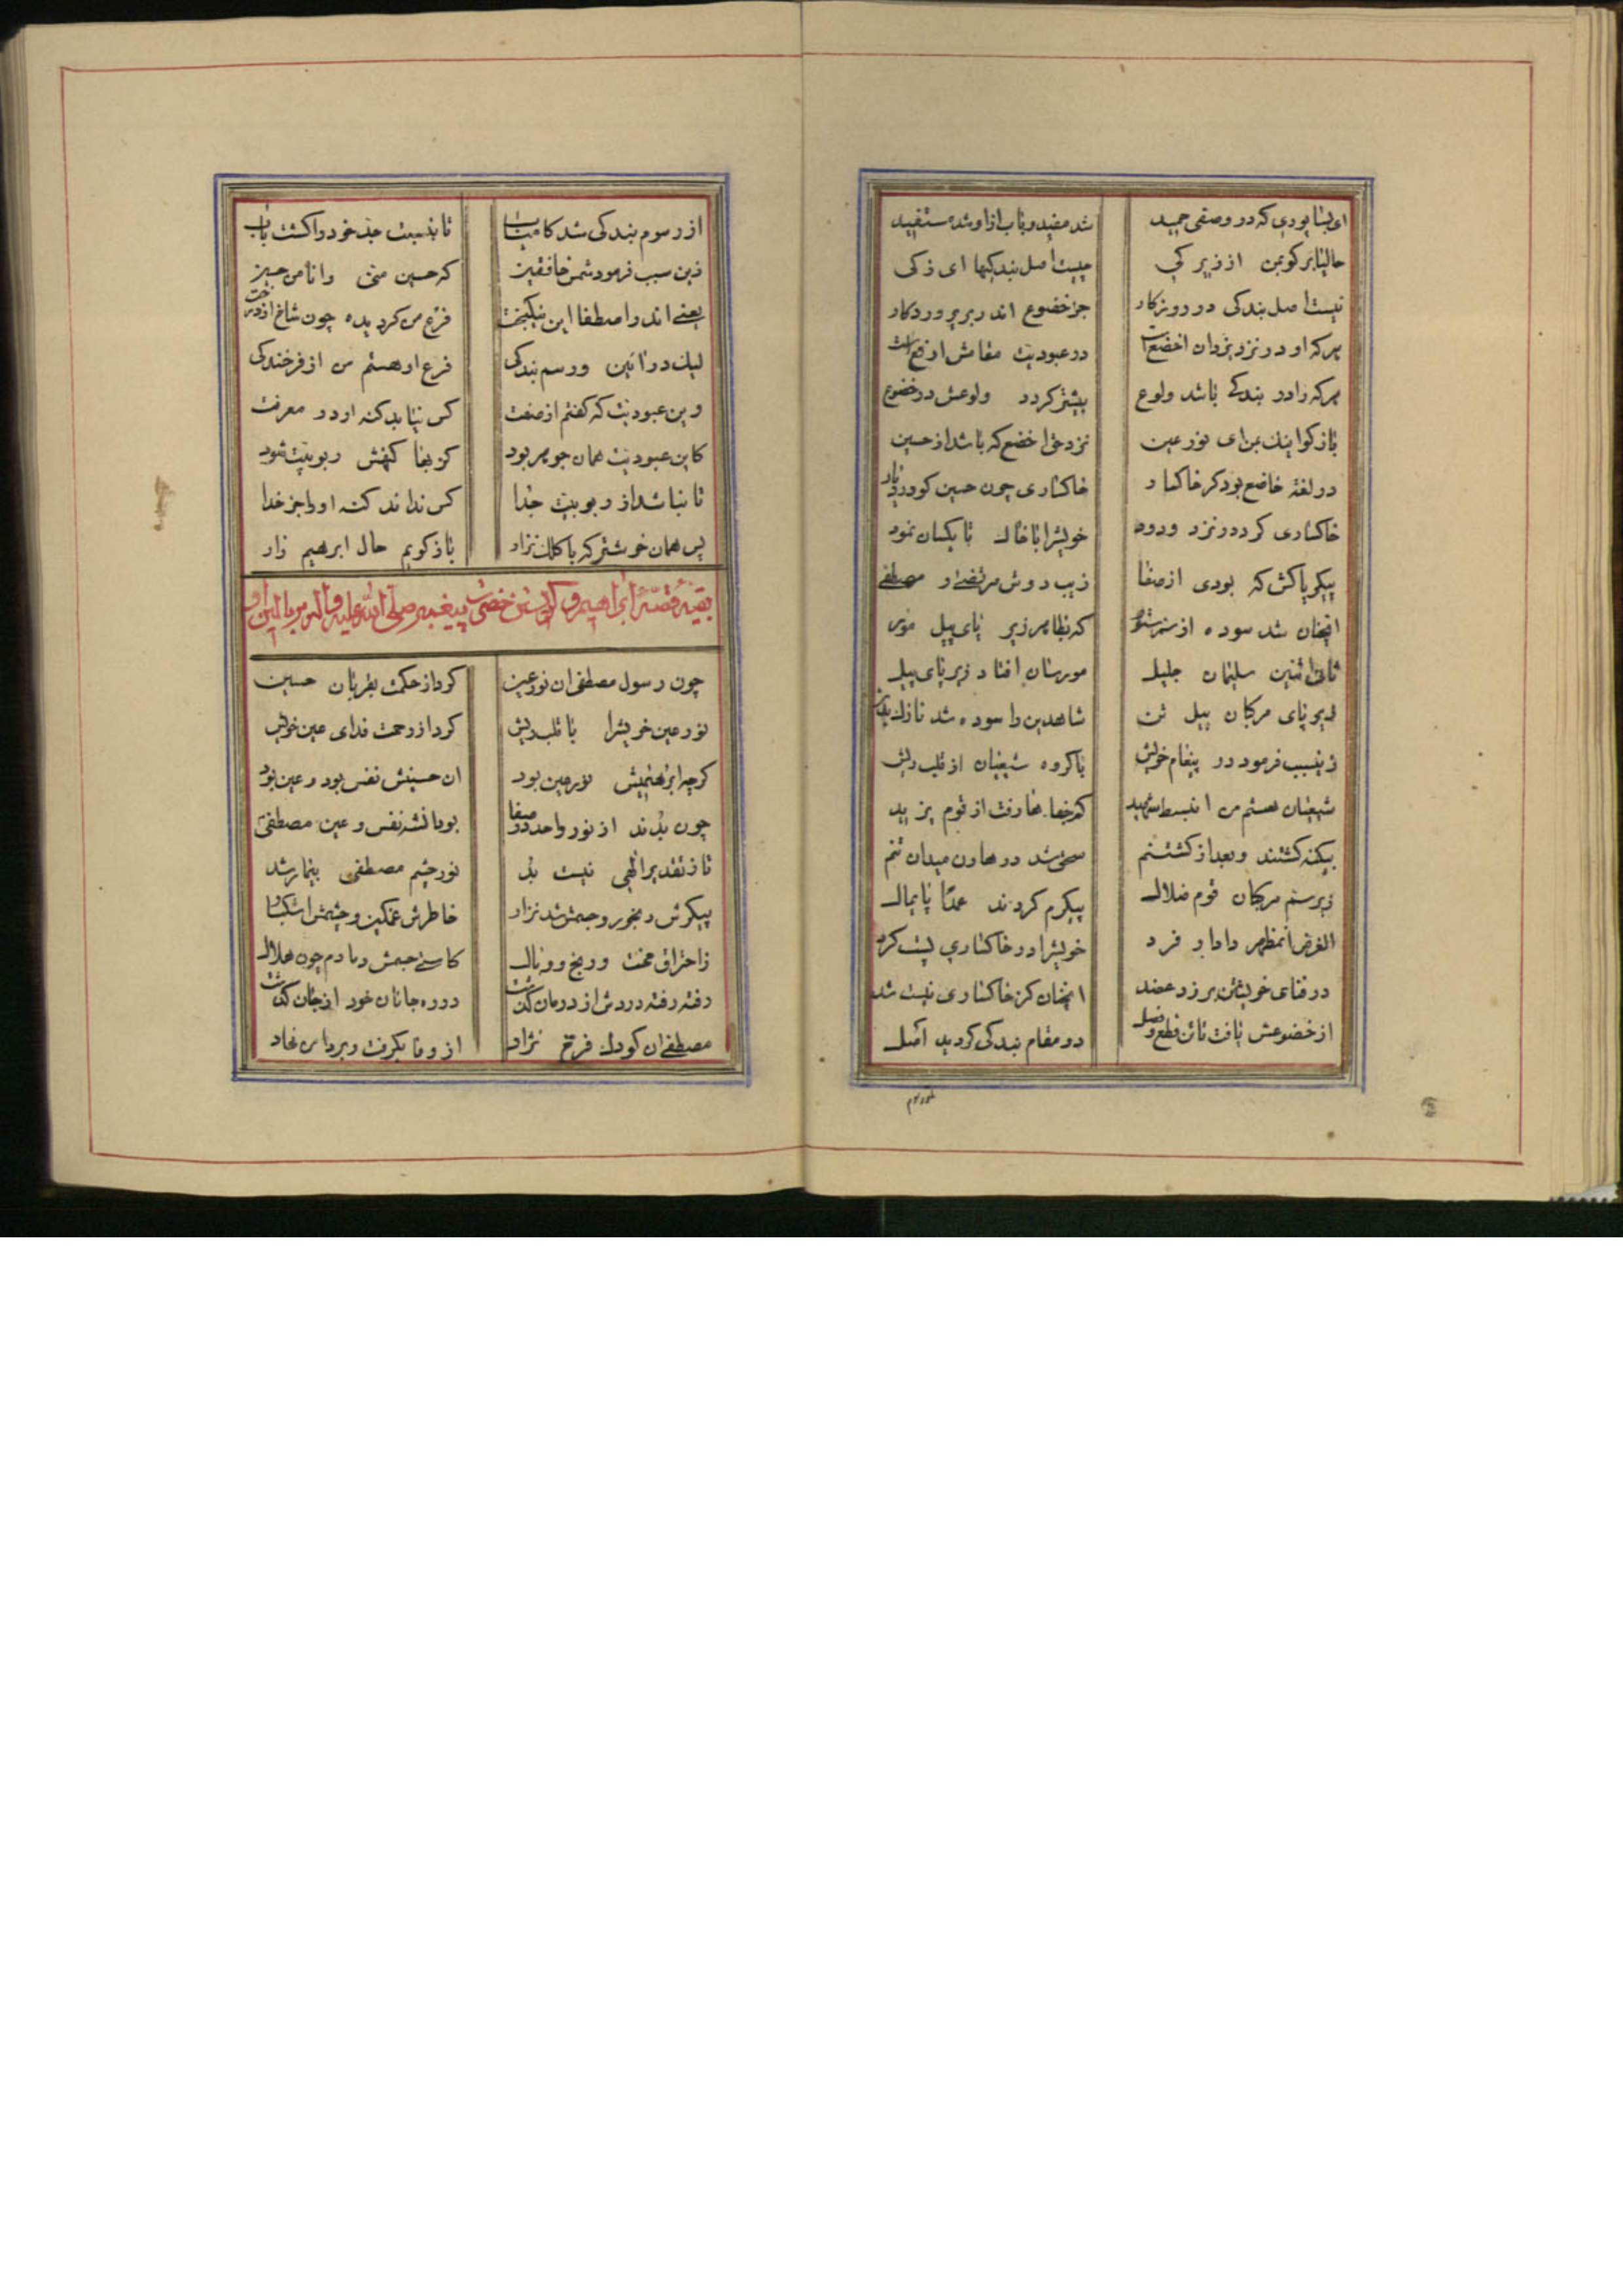 ای بسا بودی که در وصفی حمید شد مفید و باب ازاو شد مستفید
حالیا بر کو بمن از زیرکی چیست اصل بندکیها ای ذکی
نیست اصل بندکی در روزکار جز خضوع اندر بر پروردکار
هرکه او در نزد یزدان اخضع است در عبودیت مقامش ارفع است
هرکه را در بندکی باشد ولوع بیشتر کردد ولوعش در خضوع
بازکو اینک بمن ای نور عین نزد حق اخضع که باشد از حسین
در لغة خاضع بود کر خاکسار خاکساری چون حسین کو در
خاکساری کرد در نزد ودود خویشرا با خاک تا یکسان نمود
پیکر پاکش که بودی از صفا زیب دوش مرتضی و مصطفی
انچنان شد سوده از سم ستور که بظاهر زیر پای پیل مور
ثانی اثنین سلیمان جلیل مورسان افتاد زیر پای پیل
زیر پای مرکبان پیل تن شاهدین را سوده شد نازک بدن
زینسبب فرمود در پیغام خویش با کروه شیعیان از قلب ریش
شیعیان هستم من انسبط شهید که جفاها رفت از قوم یزید
بیکنه کشتند و بعد از کشتنم سحق شد در هاون میدان تنم
زیر سم مرکبان قوم ضلال پیکرم کردند عمدا پایمال
الغرض انمظهر دادار فرد خویشرا در خاکساری پست کرد
در فنای خویشتن بر زد انچنان کز خاکساری نیست شد
از خضوعش یافت تائن قطع وصل در مقام بندکی کردید اصل
از رسوم بندکی شد کامیاب تا بنسبت جد خود را کشت باب
زین سبب فرمود شمس خافقین که حسین منی وانا من حسین
یعنی اندر اصطفا این نیکبخت فرع من کردیده چون شاخ از درخت
لیک در ائین و رسم بندکی فرع او هستم من از فرخندکی
وین عبودیت که کفتم از صفت کس نیابد کنه او در معرفت
کاین عبودیت همان جوهر بود کز خفا کنهش ربوبیت شود
تا نباشد از ربوبیت جدا کس نداند کنه او را جز خدا
پس همان خوشتر که با کلک نزار بازکویم حال ابرهیم زار
بقیه قصه ابراهیم و کریستن حضرت پیغمبر صلی الله علیه واله بر بالین او
چون رسول مصطفی ان نور عین کرد از حکمت بقربان حسین
نور عین خویشرا با قلب ریش کرد از رحمت فدای عین خویش
کرچه ابرهیمیش نور عین بود ان حسینش نفس بود و عین بود
چون بدند از نور واحد در صفا بود انشه نفس و عین مصطفی
تا ز تقدیر الهی نیست بد نور چشم مصطفی بیمار شد
پیکرش رنجور و جسمش شد نزار خاطرش غمکین و چشمش اشکبار
زاحتراق محنت و رنج و وبال کاستی جسمش دمادم چون هلال
رفته رفته دردش از درمان کذشت در ره جانان خود از جان کذشت
مصطفی ان کودک فرخ نژاد از وفا بکرفت و بر دامن نهاد